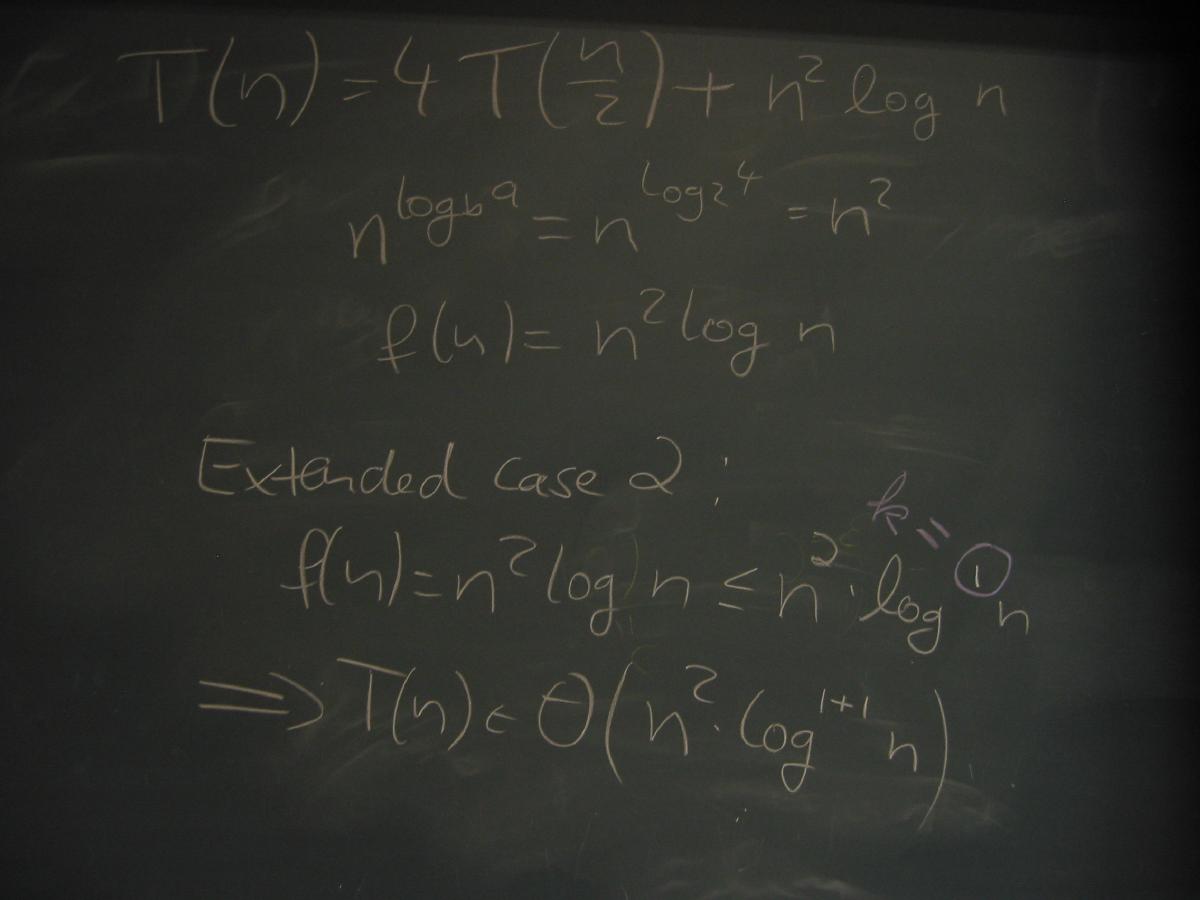 T(n) = 4 T(n/2) + n² log n
n^(log_b a) = n^(log_2 4) = n²
f(n) = n² log n
Extended case 2 :
k =
f(n) = n² log n ≤ n² · log^① n
⟹ T(n) ∈ Θ(n² · log^(1+1) n)